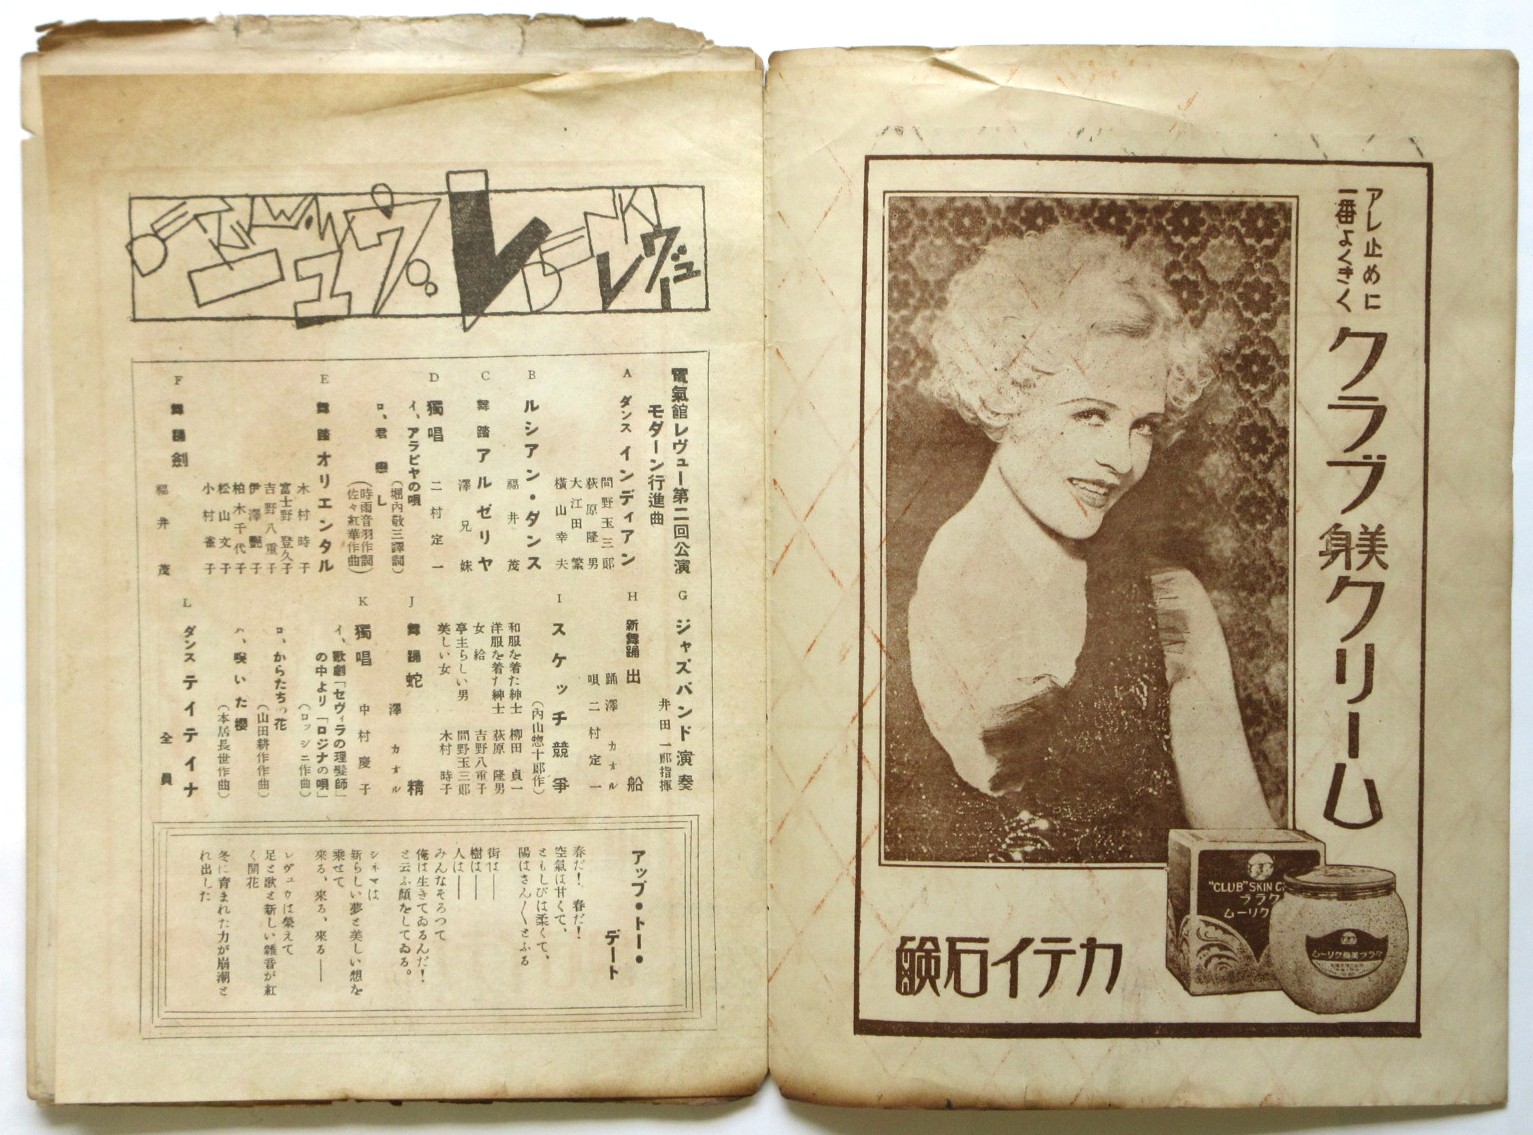 アレ止めに
一番よくきく
クラブ美身クリーム
カテイ石鹸
"CLUB" SKIN
クラブ
クラブ美身クリーム
レヴュー
電氣館レヴュー第二回公演
モダーン行進曲
A ダンス インディアン
間野玉三郎
荻原隆男
大江田繁
横山幸夫
B ルシアン・ダンス
福井茂
C 舞踏 アルゼリヤ
澤兄妹
D 獨唱
二村定一
イ、アラビヤの唄
(堀内敬三譯詞)
ロ、君戀し
(時雨音羽作詞)
(佐々紅華作曲)
E 舞踏 オリエンタル
木村時子
富士野登久子
吉野八重子
伊澤艶子
柏木千代子
松山文子
小村雀子
F 舞踊 劍
福井茂
G ジャズバンド演奏
井田一郎指揮
H 新舞踊 出船
踊 澤カオル
唄 二村定一
I スケッチ 競爭
(內山惣十郎作)
和服を着た紳士 柳田貞一
洋服を着た紳士 荻原隆男
女給 吉野八重子
亭主らしい男 間野玉三郎
美しい女 木村時子
J 舞踊 蛇精
澤カオル
K 獨唱
中村慶子
イ、歌劇「セヴィラの理髮師」
の中より「ロジナの唄」
(ロッシニ作曲)
ロ、からたちの花
(山田耕作作曲)
ハ、咲いた櫻
(本居長世作曲)
L ダンス テイテイナ
全員
アップ・トー・
デート
春だ! 春だ!
空氣は甘くて、
ともしびは柔くて、
陽はさん〱とふる
街は――
樹は――
人は――
みんなそろつて
俺は生きてゐるんだ!
と云ふ顏をしてゐる。
シネマは
新らしい夢と美しい想を
乘せて
來る、來る、來る――
レヴュウは榮えて
足と歌と新しい雜音が紅
く開花
冬に育まれた力が崩潮と
れ出した